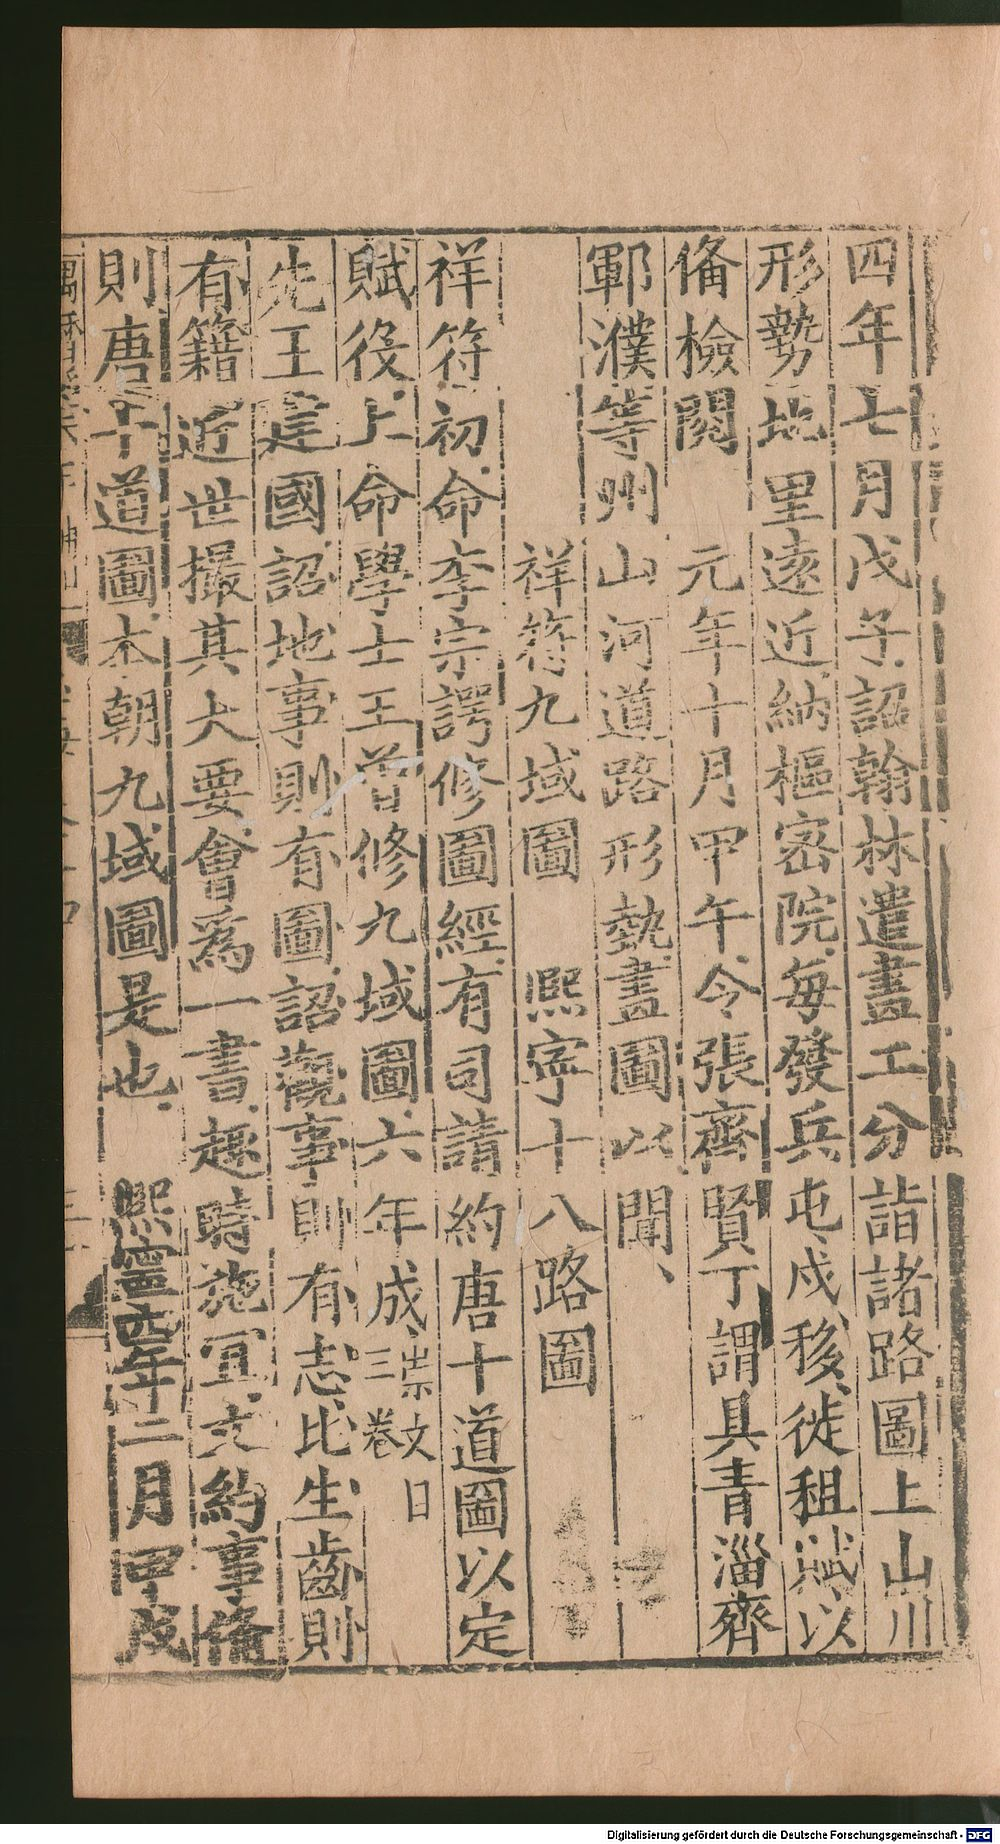 四年七月戊子詔翰林遣畫工分詣諸路圖上山川
形勢地里遠近納樞密院每發兵屯戍移徙租賦以
備檢閱　元年十月甲午令張齊賢丁謂具青淄齊
鄆濮等州山河道路形勢畫圖以聞
祥符九域圖　熙寧十八路圖
祥符初命李宗諤修圖經有司請約唐十道圖以定
賦役上命學士王曾修九域圖六年成崇文目三卷
先王建國詔地事則有圖詔觀事則有志比生齒則
有籍近世撮其大要會為一書趣時施宜文約事備
則唐十道圖本朝九域圖是也　熙寧四年二月甲戌
Digitalisierung gefördert durch die Deutsche Forschungsgemeinschaft - DFG